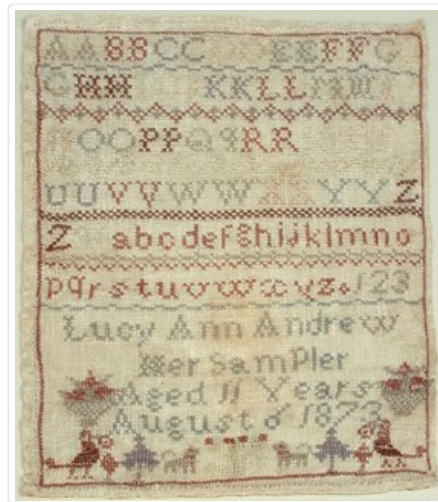 A A B B C C E E F F G
G H H K K L L M M
O O P P Q q R R
U U V V W W Y Y Z
Z a b c d e f g h i j k l m n o
p q r s t u v w x y z & 1 2 3
Lucy Ann Andrew
Her Sampler
Aged 11 Years
August 6 1873